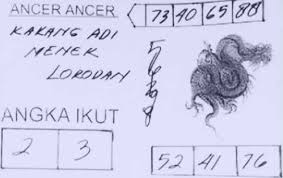 ANCER ANCER
73 40 65 88
KAKANG ADI
MENEK
LORODAN
ANGKA IKUT
2 3
52 41 76